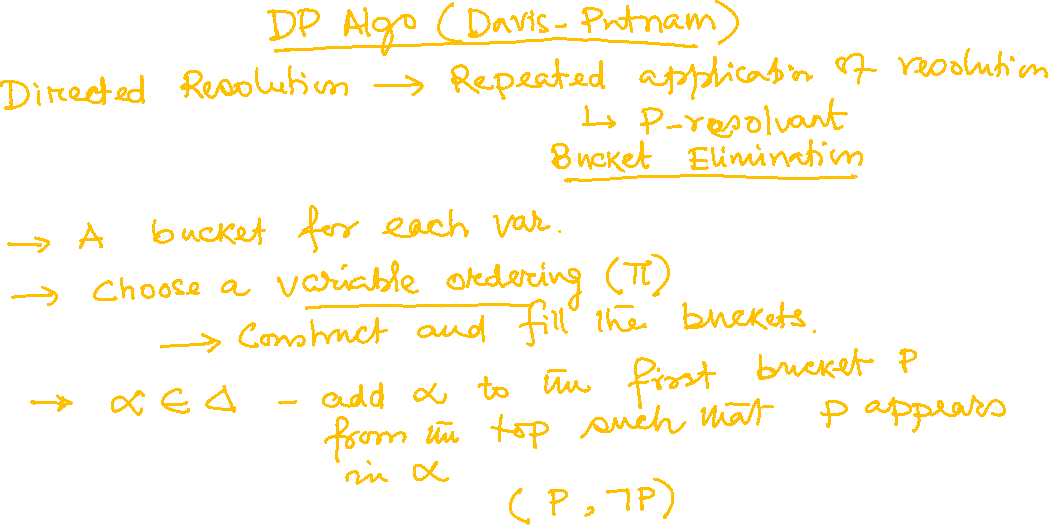 DP Algo (Davis-Putnam)
Directed Resolution → Repeated application of resolution
↳ P-resolvant
Bucket Elimination
→ A bucket for each var.
→ Choose a variable ordering (π)
→ Construct and fill the buckets.
→ α ∈ Δ - add α to the first bucket P
from the top such that p appears
in α
(P, ¬P)